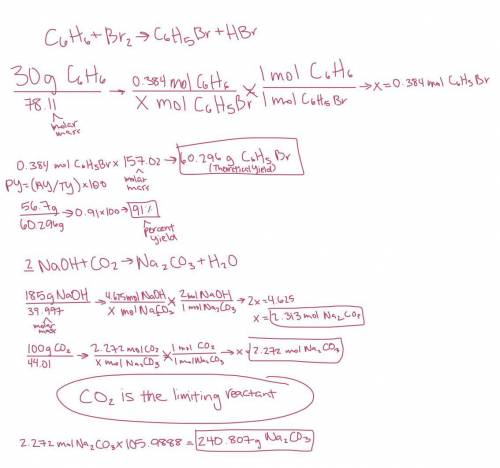 C₆H₆ + Br₂ → C₆H₅Br + HBr
30g C₆H₆ / 78.11 → 0.384 mol C₆H₆ / X mol C₆H₅Br × 1 mol C₆H₆ / 1 mol C₆H₅Br → x = 0.384 mol C₆H₅Br
molar mass
0.384 mol C₆H₅Br × 157.02 → 60.296 g C₆H₅Br
(Theoretical yield)
molar mass
PY = (AY/TY) × 100
56.7g / 60.296g → 0.91 × 100 → 91%
percent yield
2 NaOH + CO₂ → Na₂CO₃ + H₂O
185g NaOH / 39.997 → 4.625 mol NaOH / X mol Na₂CO₃ × 2 mol NaOH / 1 mol Na₂CO₃ → 2x = 4.625
molar mass
x = 2.313 mol Na₂CO₃
100g CO₂ / 44.01 → 2.272 mol CO₂ / x mol Na₂CO₃ × 1 mol CO₂ / 1 mol Na₂CO₃ → x = 2.272 mol Na₂CO₃
CO₂ is the limiting reactant
2.272 mol Na₂CO₃ × 105.9888 = 240.807g Na₂CO₃